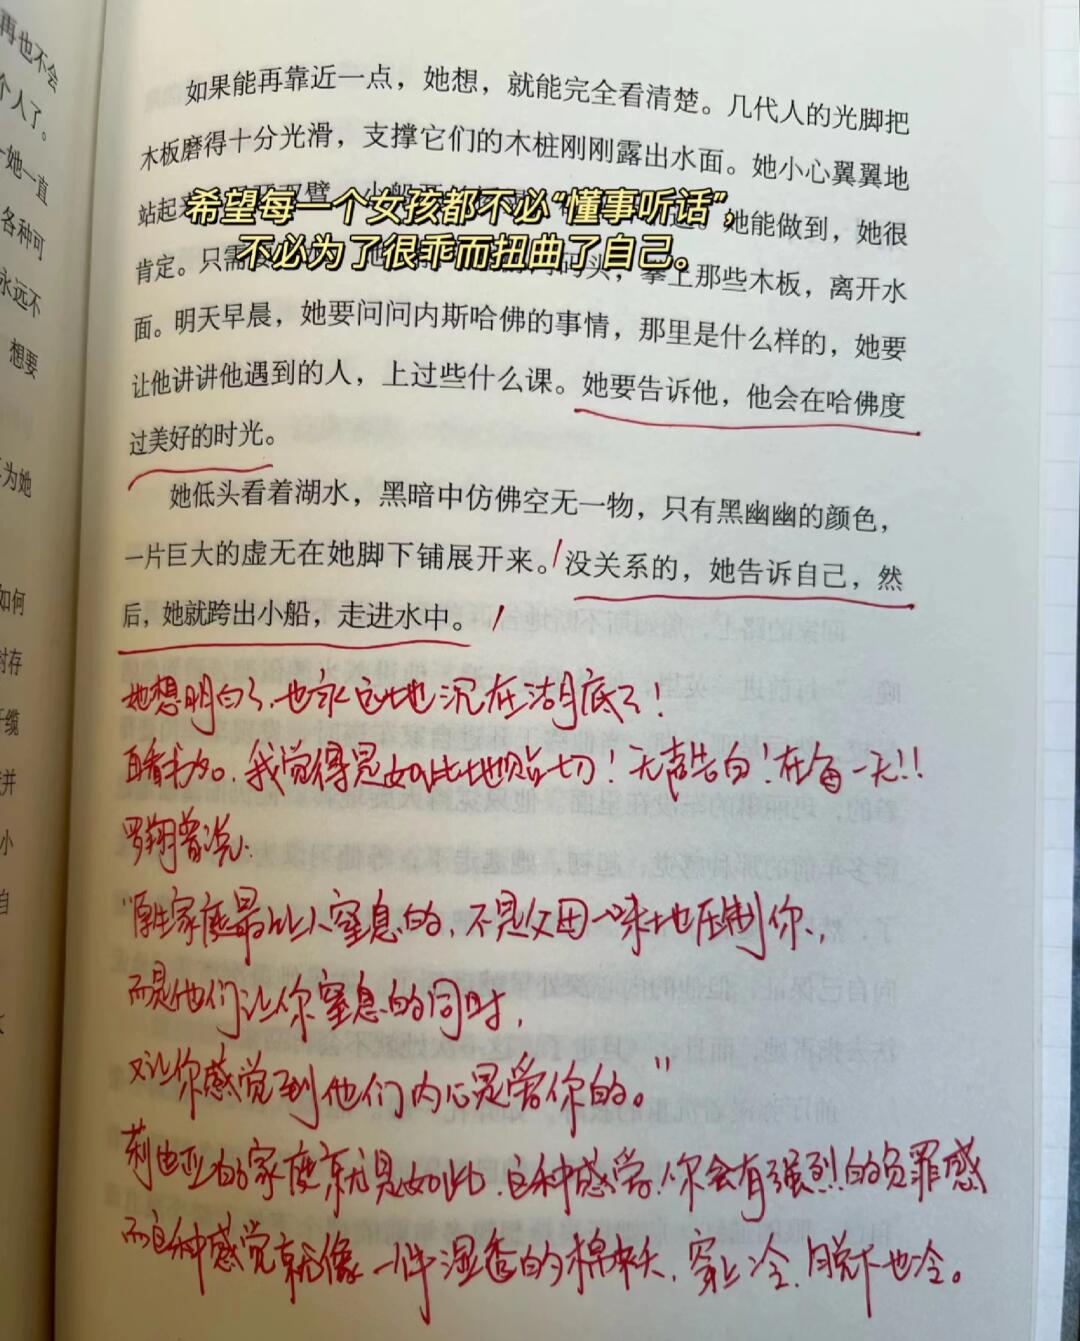 再也不会
个人了。
她一直
各种可
永远不
想要
为她
如何
封存
缆
并
小
自
如果能再靠近一点，她想，就能完全看清楚。几代人的光脚把
木板磨得十分光滑，支撑它们的木桩刚刚露出水面。她小心翼翼地
站起
她能做到，她很
希望每一个女孩都不必“懂事听话”，
不必为了很乖而扭曲了自己。
肯定。只需要
码头，攀上那些木板，离开水
面。明天早晨，她要问问内斯哈佛的事情，那里是什么样的，她要
让他讲讲他遇到的人，上过些什么课。她要告诉他，他会在哈佛度
过美好的时光。
她低头看着湖水，黑暗中仿佛空无一物，只有黑幽幽的颜色，
一片巨大的虚无在她脚下铺展开来。没关系的，她告诉自己，然
后，她就跨出小船，走进水中。
她想明白了，也永远地沉在湖底了！
再看书名。我觉得是如此地贴切！无声告白！在每一天！！
罗翔曾说：
“原生家庭最让人窒息的，不是父母一味地压制你，
而是他们让你窒息的同时，
又让你感觉到他们内心是爱你的。”
莉迪亚的家庭就是如此，这种感觉！你会有强烈的负罪感
而这种感觉就像一件湿透的棉袄，穿上冷，脱下也冷。